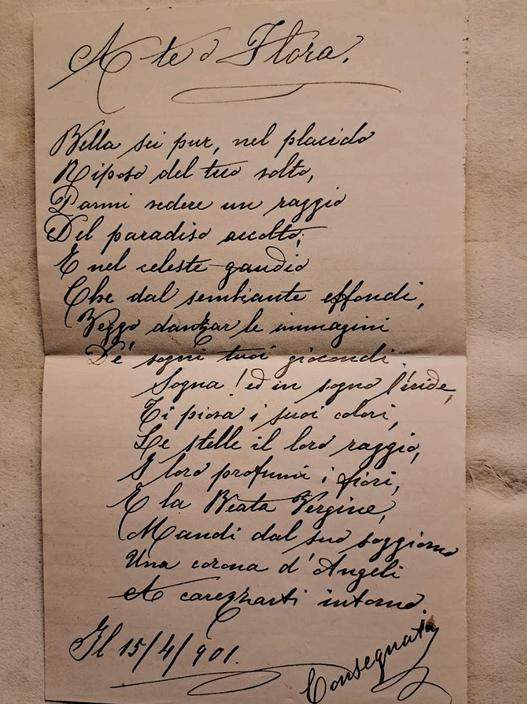 A te o Flora.
Bella sei pur, nel placido
Riposo del tuo volto,
Parmi vedere un raggio
Del paradiso accolto;
E nel celeste gaudio
Che dal sembiante effondi,
Veggo danzar le immagini
De' sogni tuoi giocondi.
Sogna! ed in sogno l'iride,
Ti piova i suoi colori,
Le stelle il loro raggio,
I loro profumi i fiori,
E la Beata Vergine,
Mandi dal suo soggiorno
Una corona d'Angeli
A carezzarti intorno.
Il 15/4/901.
Consegnata